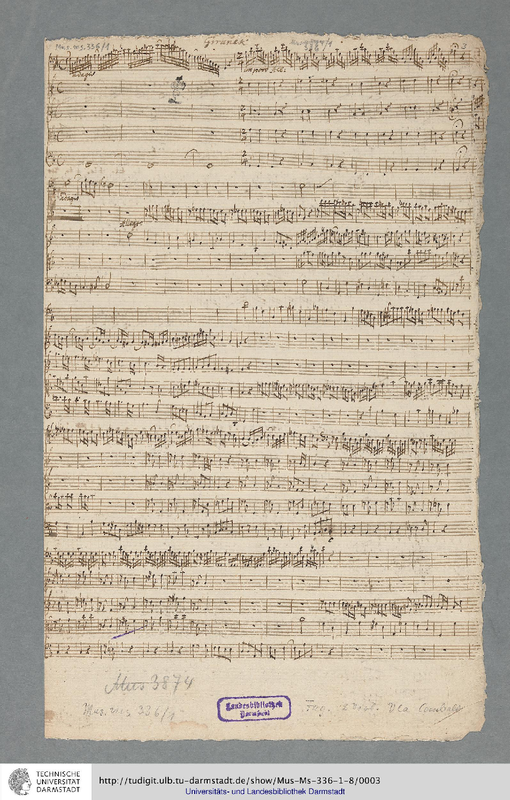 Mus. ms. 336/1
Giranek
3
Adagio
Adagio
Allegro
Mus 3874
Mus. ms 336/1
Landesbibliothek
Darmstadt
TECHNISCHE
UNIVERSITÄT
DARMSTADT
http://tudigit.ulb.tu-darmstadt.de/show/Mus-Ms-336-1-8/0003
Universitäts- und Landesbibliothek Darmstadt